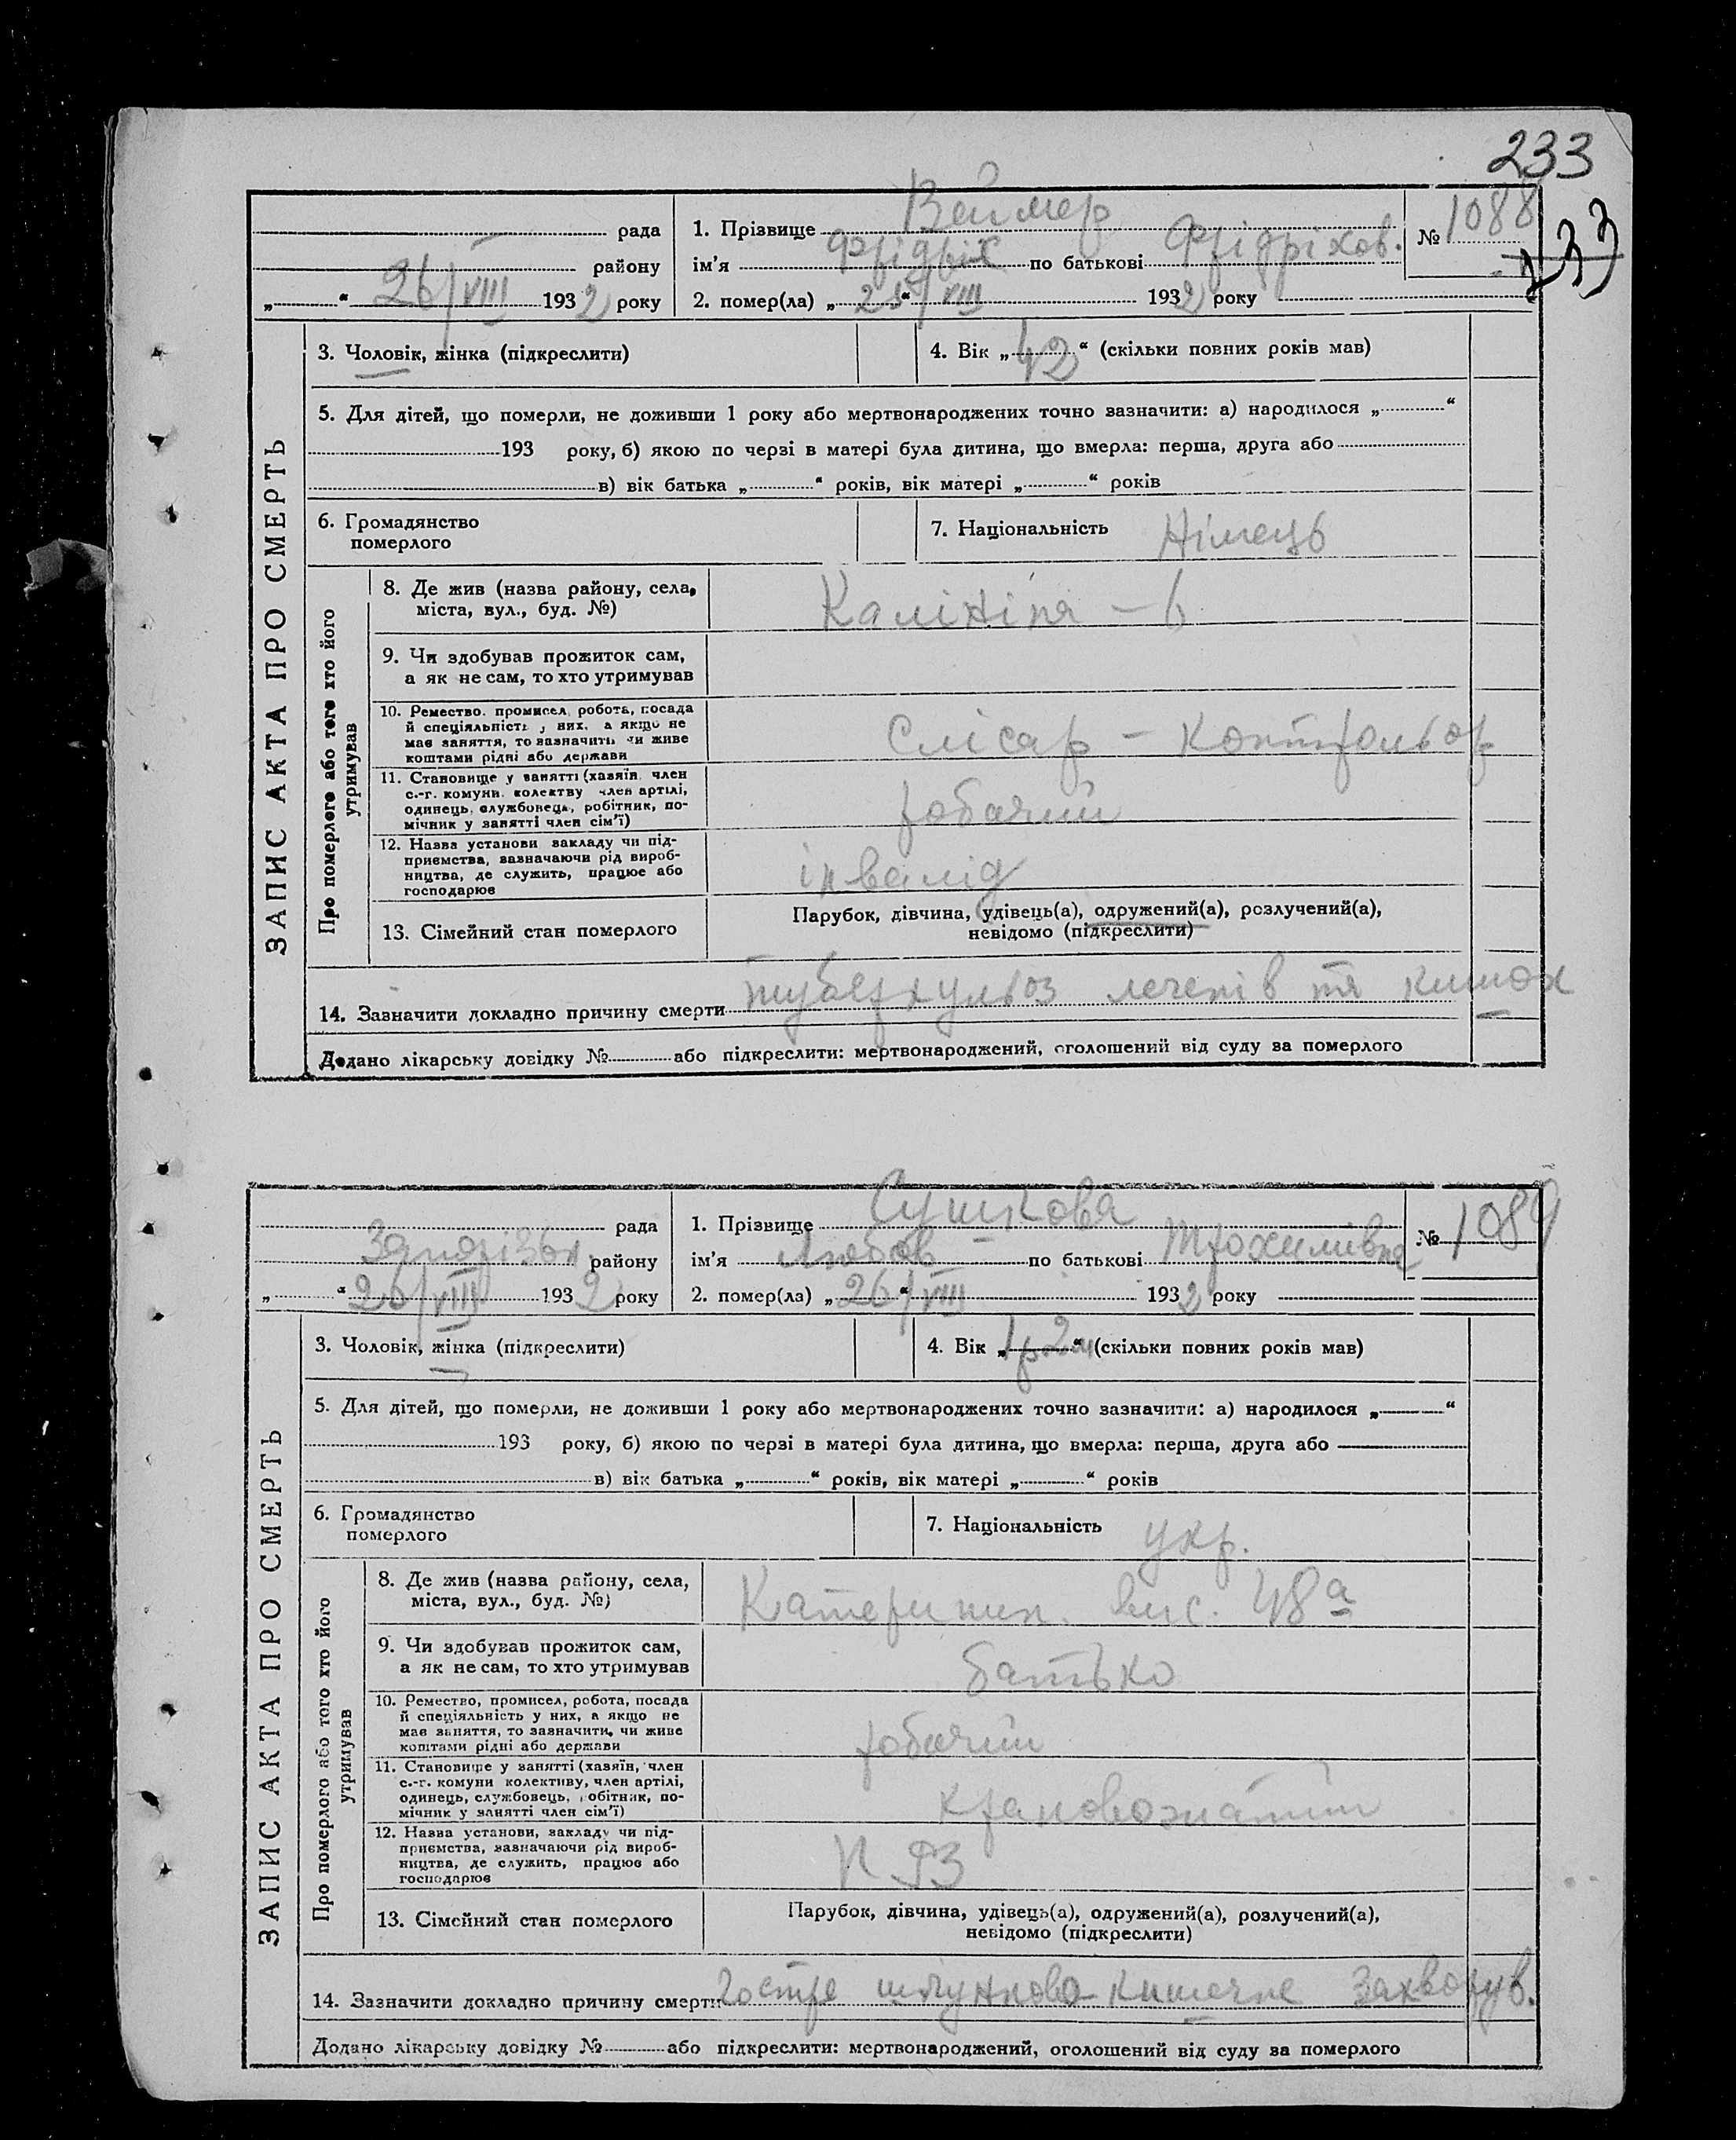 233
Веймер
рада 1. Прізвище № 1088
району ім'я Фрідріх по батькові Фрідріхов. 233
„ “ 26/VIII 1932 року 2. помер(ла) „25“/VIII 1932 року
ЗАПИС АКТА ПРО СМЕРТЬ
3. Чоловік, жінка (підкреслити) 4. Вік „42“ (скільки повних років мав)
5. Для дітей, що померли, не доживши 1 року або мертвонароджених точно зазначити: а) народилося „ “
193 року, б) якою по черзі в матері була дитина, що вмерла: перша, друга або
в) вік батька „ “ років, вік матері „ “ років
6. Громадянство
померлого
7. Національність Німець
Про померлого або того хто його
утримував
8. Де жив (назва району, села,
міста, вул., буд. №)
Калініна – 6
9. Чи здобував прожиток сам,
а як не сам, то хто утримував
10. Ремество, промисел, робота, посада
й спеціяльність у них, а якщо не
має заняття, то зазначить чи живе
коштами рідні або держави
Слісар – контрольор
11. Становище у занятті (хазяїн, член
с.-г. комуни, колективу член артілі,
одинець, службовець, робітник, по-
мічник у занятті член сім'ї)
робочий
12. Назва установи закладу чи під-
приємства, зазначаючи рід вироб-
ництва, де служить, працює або
господарює
інвалід
13. Сімейний стан померлого
Парубок, дівчина, удівець(а), одружений(а), розлучений(а),
невідомо (підкреслити)
14. Зазначити докладно причину смерти туберкульоз легенів та кишок
Додано лікарську довідку № або підкреслити: мертвонароджений, оголошений від суду за померлого
Сушкова
рада 1. Прізвище № 1089
району ім'я Любов по батькові Трохимівна
„ “ 26/VIII 1932 року 2. помер(ла) „26“/VIII 1932 року
ЗАПИС АКТА ПРО СМЕРТЬ
3. Чоловік, жінка (підкреслити) 4. Вік „1р 2м“ (скільки повних років мав)
5. Для дітей, що померли, не доживши 1 року або мертвонароджених точно зазначити: а) народилося „ “
193 року, б) якою по черзі в матері була дитина, що вмерла: перша, друга або
в) вік батька „ “ років, вік матері „ “ років
6. Громадянство
померлого
7. Національність укр.
Про померлого або того хто його
утримував
8. Де жив (назва району, села,
міста, вул., буд. №)
Катеринин. вис. 48а
9. Чи здобував прожиток сам,
а як не сам, то хто утримував
батько
10. Ремество, промисел, робота, посада
й спеціяльність у них, а якщо не
має заняття, то зазначити, чи живе
коштами рідні або держави
робочий
11. Становище у занятті (хазяїн, член
с.-г. комуни колективу, член артілі,
одинець, службовець, робітник, по-
мічник у занятті член сім'ї)
12. Назва установи, закладу чи під-
приємства, зазначаючи рід вироб-
ництва, де служить, працює або
господарює
13. Сімейний стан померлого
Парубок, дівчина, удівець(а), одружений(а), розлучений(а),
невідомо (підкреслити)
14. Зазначити докладно причину смерти Гостре шлунково-кишечне захворув.
Додано лікарську довідку № або підкреслити: мертвонароджений, оголошений від суду за померлого